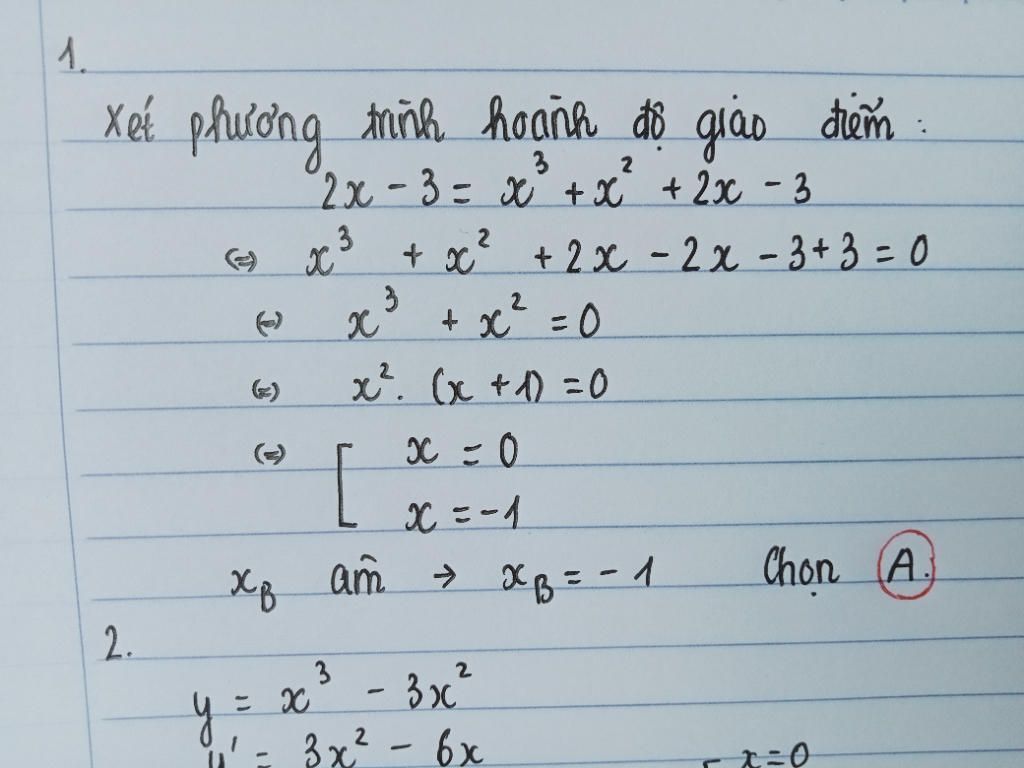 1.
Xét phương trình hoành độ giao điểm :
2x - 3 = x³ + x² + 2x - 3
(=) x³ + x² + 2x - 2x - 3 + 3 = 0
(=) x³ + x² = 0
(=) x² . (x + 1) = 0
(=) [ x = 0
x = -1
x_B âm → x_B = -1 Chọn A.
2.
y = x³ - 3x²
y' = 3x² - 6x [ x = 0